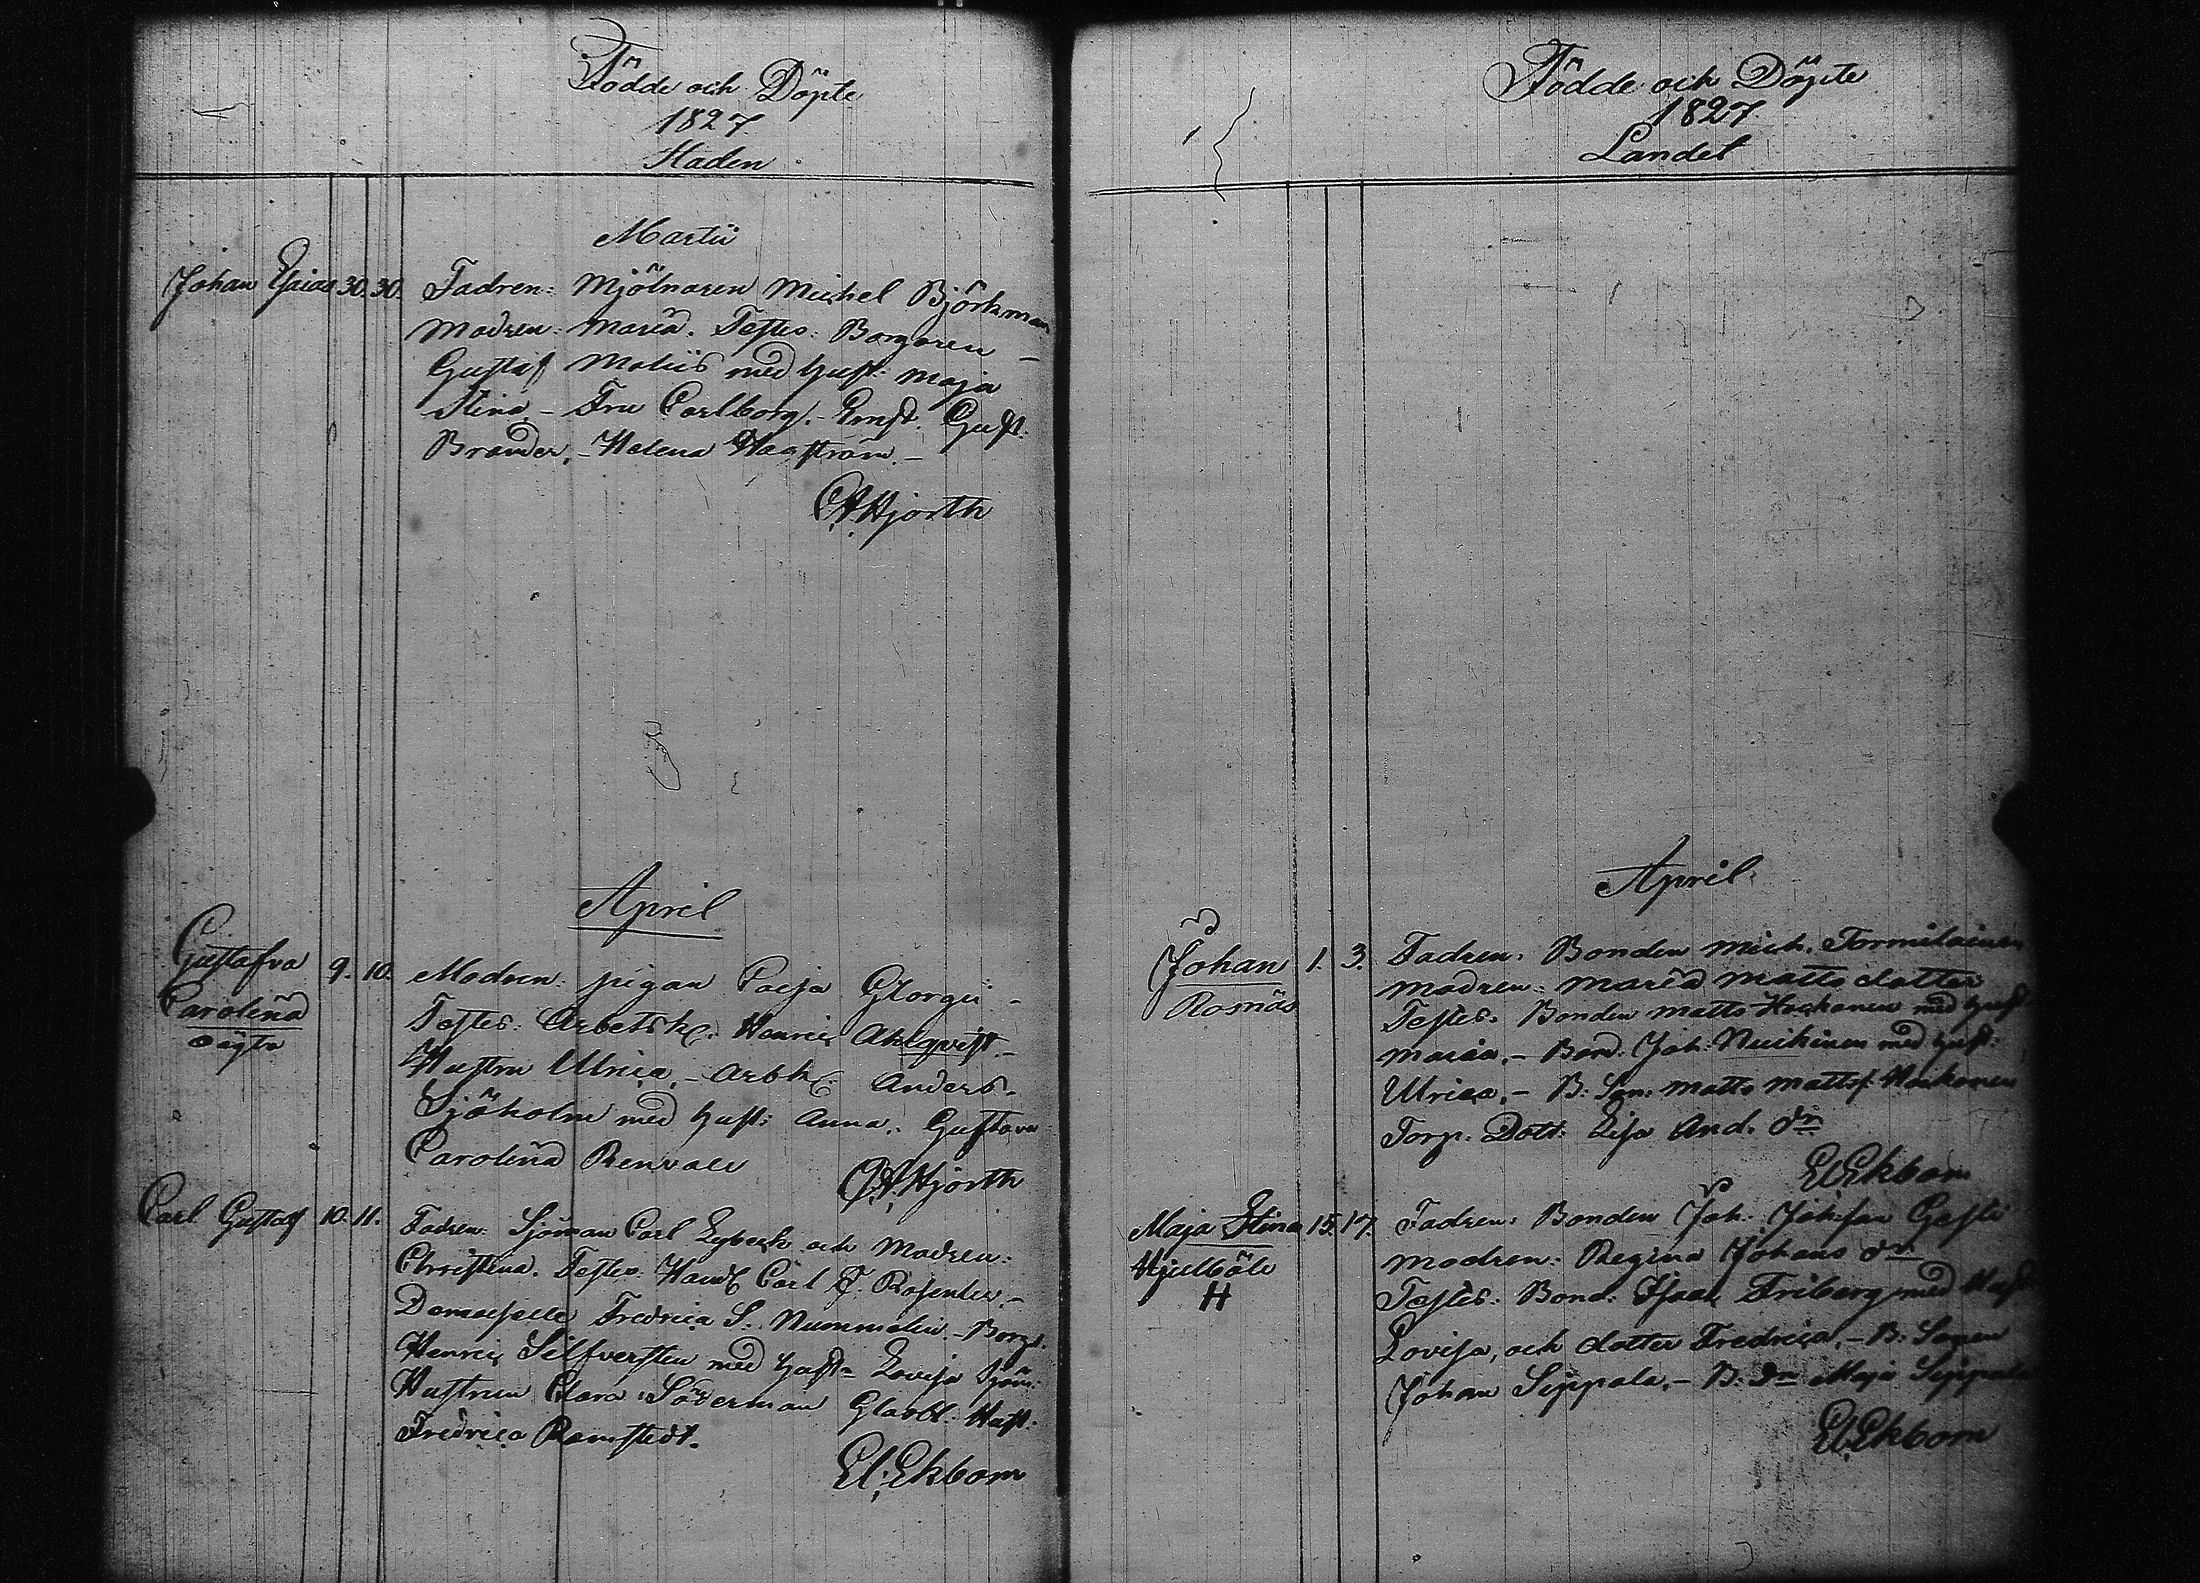 Födde och Döpte
1827.
Staden
Martii
Johan Esaias 30. 30. Fadren: Mjölnaren Michel Björkman
Modren: Maria. Testes: Borgaren –
Gustaf Moliis med hust: Maja
Stina. – Fru Carlborg. – Ernst. Gust:
Brander. – Helena Hagström. –
Hjorth
April
Gustafva
Carolina
oägta
9. 10. Modren: pigan Caisa Glorgii –
Testes: Arbetsk. Henric Ahlqvist. –
Hustru Ulrica, – Arbk. Anders –
Sjöholm med hust: Anna. Gustava
Carolina Renvall
Hjorth
Carl Gustaf 10. 11. Fadren: Sjöman Carl Lybeck och Modren:
Christina. Testes: Handl Carl F. Rosenlew, –
Demoiselle Fredrica S. Nummelin – Borg.
Henric Silfversten med hust– Lovisa Sjöm:
Hustrun Clara Söderman Glasbl: Hust:
Fredrica Ramstedt.
El. Ekbom
Födde och Döpte
1827.
Landet
April
Johan
Rosnäs
1. 3. Fadren: Bonden Mich. Tormilainen
Modren: Maria Matts dotter
Testes: Bonden Matts Hockonen med hust
Maria, – Bond. Joh: Nuikinen med hust:
Ulrica, – B: Son: Matts Matts. Hockonen
Torp. Dott: Lisa And. dr
El. Ekbom
Maja Stina
Hjelböle
H
15. 17. Fadren: Bonden Joh: Johsson Gesti
Modren: Regina Johans dr
Testes: Bond: Isaac Friberg med Hust
Lovisa, och dotter Fredrica, – B: Sonen
Johan Seppala, – B: Dr Maja Seppala
El. Ekbom